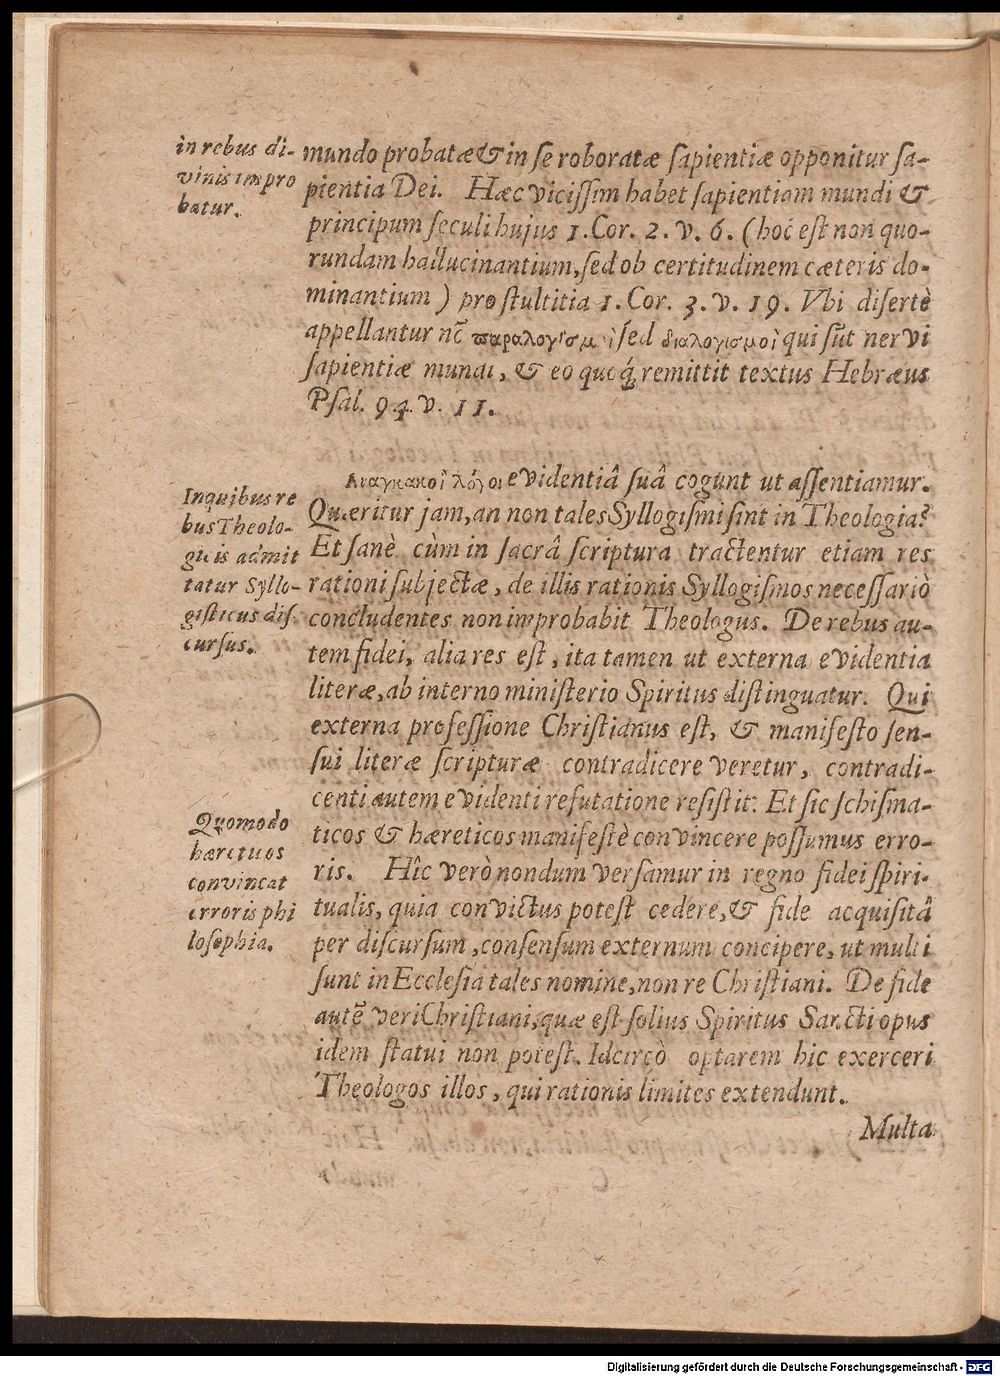 in rebus di-
vinis impro
batur.
mundo probatæ & in ſe roboratæ ſapientiæ opponitur ſa-
pientia Dei. Hæc viciſſim habet ſapientiam mundi &
principum ſeculi hujus 1. Cor. 2. v. 6. (hoc eſt non quo-
rundam hallucinantium, ſed ob certitudinem cæteris do-
minantium) pro ſtultitia 1. Cor. 3. v. 19. Vbi diſertè
appellantur nō παραλογισμοὶ ſed διαλογισμοὶ qui ſūt nervi
ſapientiæ mundi, & eo quoq́; remittit textus Hebræus
Pſal. 94. v. 11.
Inquibus re
bus Theolo-
gicis admit
tatur Syllo-
giſticus diſ-
curſus.
Αναγκακοὶ λόγοι evidentiâ ſuâ cogunt ut aſſentiamur.
Quæritur jam, an non tales Syllogiſmi ſint in Theologia?
Et ſanè cùm in ſacrâ ſcriptura tractentur etiam res
rationi ſubjectæ, de illis rationis Syllogiſmos neceſſariò
concludentes non improbabit Theologus. De rebus au-
tem fidei, alia res eſt, ita tamen ut externa evidentia
literæ, ab interno miniſterio Spiritus diſtinguatur. Qui
externa profeſſione Chriſtianus eſt, & manifeſto ſen-
ſui literæ ſcripturæ contradicere veretur, contradi-
centi autem evidenti refutatione reſiſtit: Et ſic ſchiſma-
ticos & hæreticos manifeſtè convincere poſſumus erro-
ris. Hîc verò nondum verſamur in regno fidei ſpiri-
tualis, quia convictus poteſt cedere, & fide acquiſitâ
per diſcurſum, conſenſum externum concipere, ut multi
ſunt in Eccleſia tales nomine, non re Chriſtiani. De fide
autē veri Chriſtiani, quæ eſt ſolius Spiritus Sancti opus
idem ſtatui non poteſt. Idcircò optarem hic exerceri
Theologos illos, qui rationis limites extendunt.
Quomodo
hæreticos
convincat
erroris phi
loſophia.
Multa
Digitalisierung gefördert durch die Deutsche Forschungsgemeinschaft - DFG